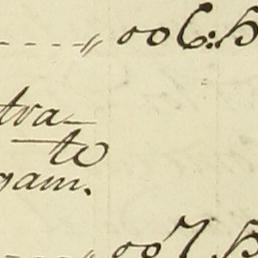 ---- " 006:
tra-
to
gam.
---- " 007.